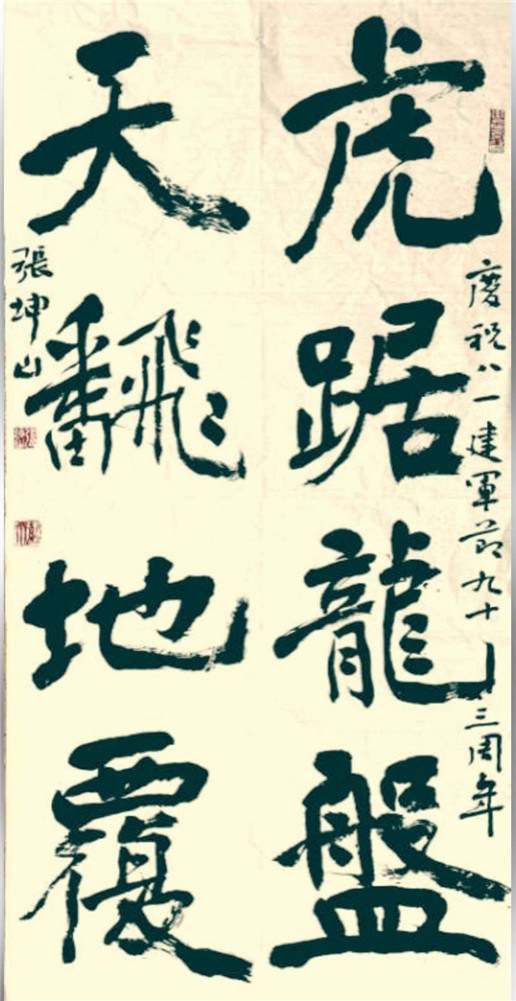 慶祝八一建軍節九十三周年
虎踞龍盤
天飜地覆
張坤山